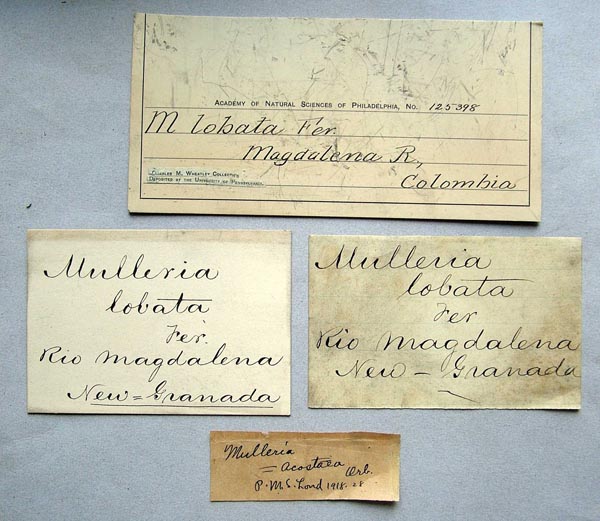 ACADEMY OF NATURAL SCIENCES OF PHILADELPHIA, NO. 125398
M lobata Fer.
Magdalena R.,
CHARLES M. WHEATLEY COLLECTION
DEPOSITED BY THE UNIVERSITY OF PENNSYLVANIA.
Colombia
Mulleria
lobata
Fér.
Rio Magdalena
New = Granada
Mulleria
lobata
Fer
Rio Magdalena
New = Granada
Mulleria
= Acostaea Orb.
P. M. S. Lond 1918. 28